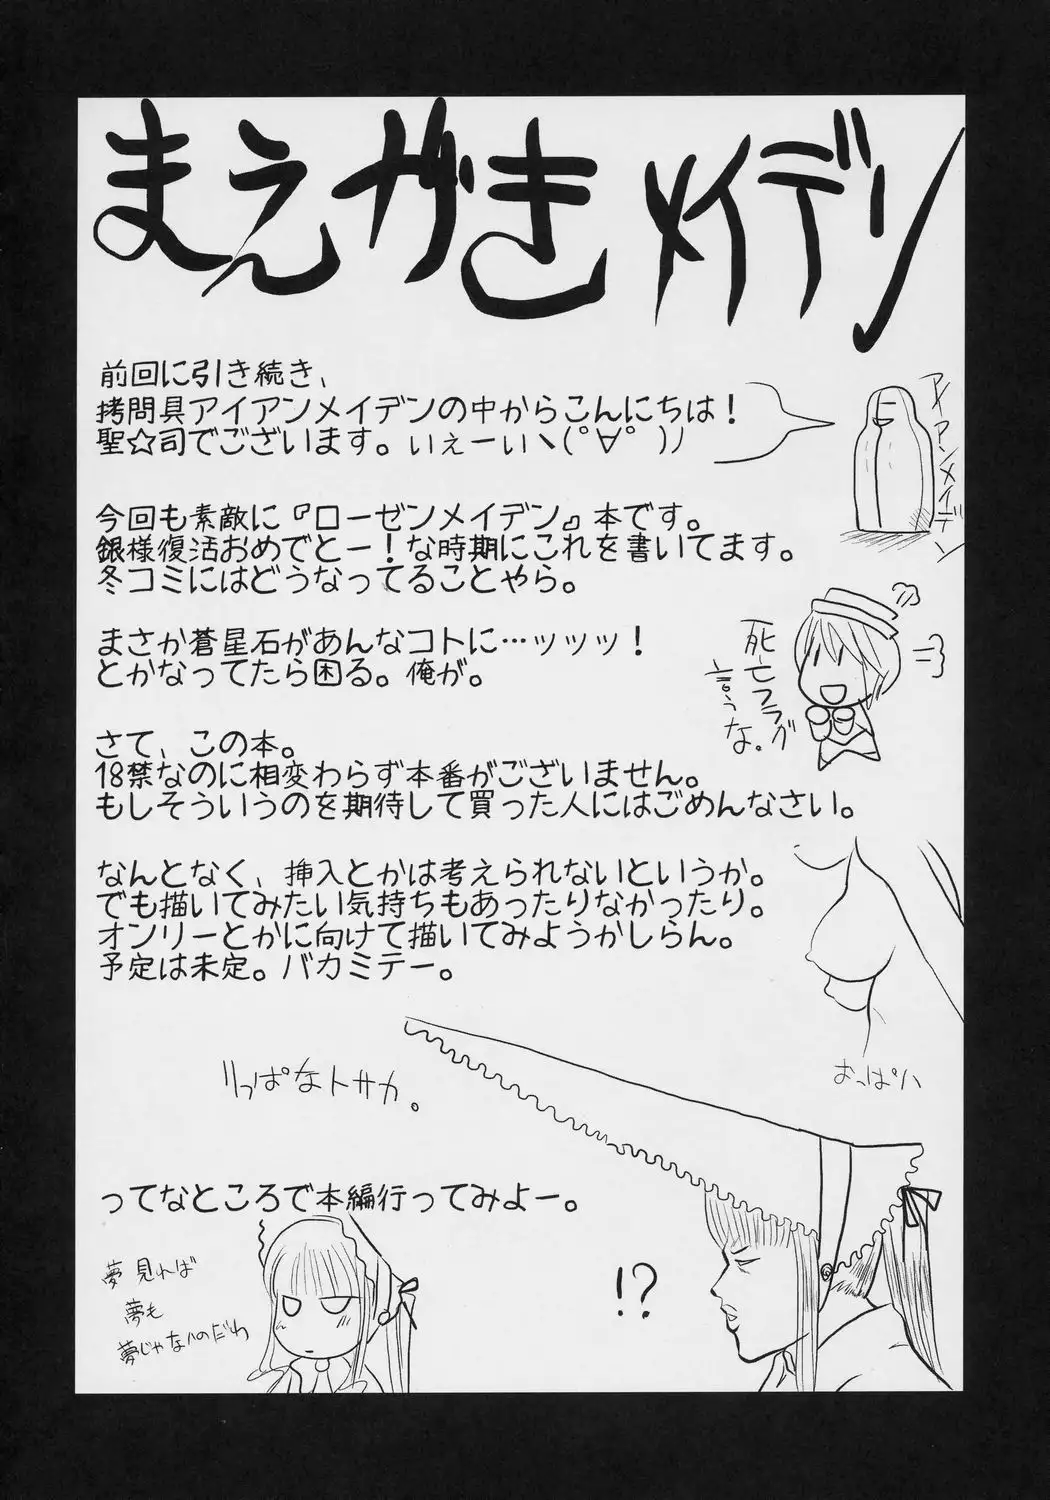 まえがきメイデン
前回に引き続き、
拷問具アイアンメイデンの中からこんにちは!
聖☆司でございます。いぇーいヽ(ﾟ∀ﾟ)ノ
アイアンメイデン
今回も素敵に『ローゼンメイデン』本です。
銀様復活おめでとー!な時期にこれを書いてます。
冬コミにはどうなってることやら。
まさか蒼星石があんなコトに…ッッッ!
とかなってたら困る。俺が。
死亡フラグ
言うな。
さて、この本。
18禁なのに相変わらず本番がございません。
もしそういうのを期待して買った人にはごめんなさい。
なんとなく、挿入とかは考えられないというか。
でも描いてみたい気持ちもあったりなかったり。
オンリーとかに向けて描いてみようかしらん。
予定は未定。バカミテー。
おっぱい
りっぱなトサカ。
ってなところで本編行ってみよー。
夢見れば
夢も
夢じゃないのだわ
!?